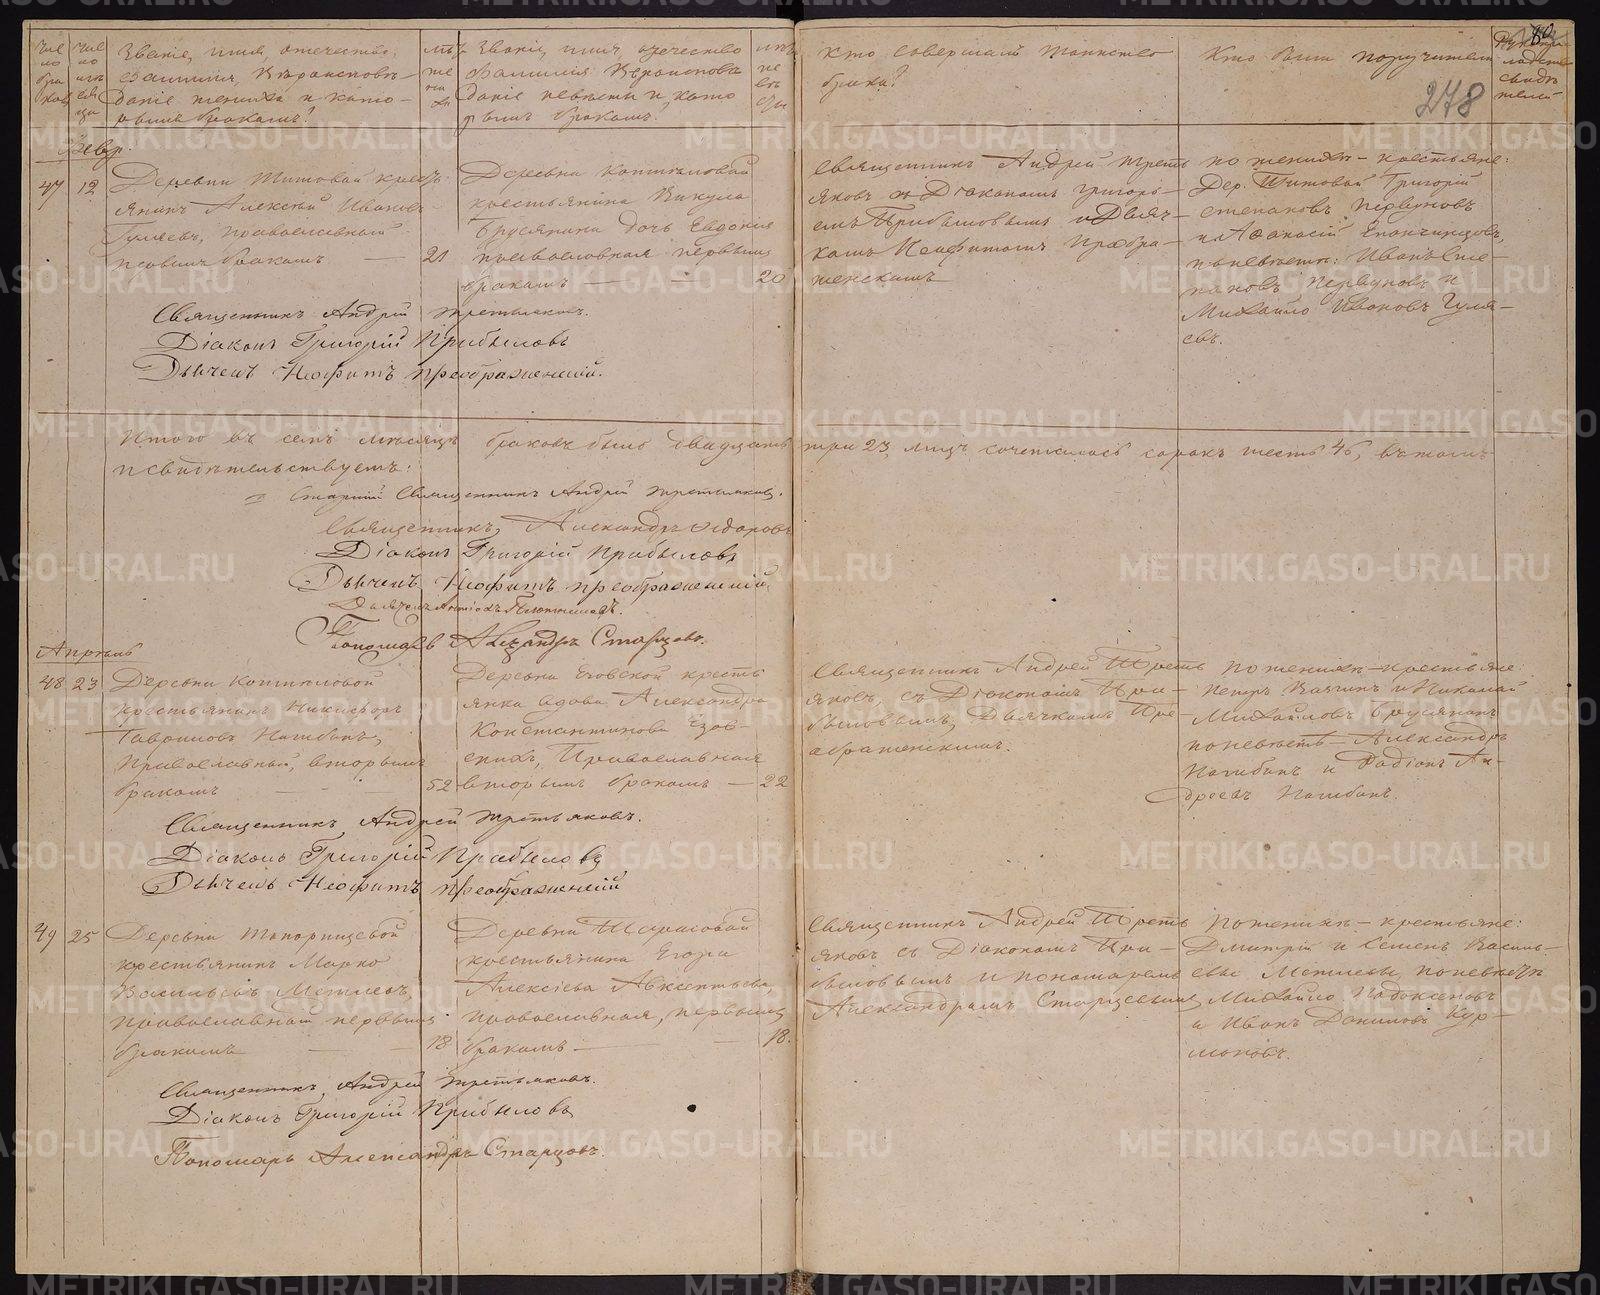 Званіе, имя, отечество,
фамилія и вѣроисповѣ-
даніе жениха и кото-
рымъ бракомъ?
лѣта
жениха
Званіе, имя, отечество
фамилія и вѣроисповѣ
даніе невѣсты и кото
рымъ бракомъ.
Кто совершалъ таинство
брака?
Кто были поручители
278
Февр.
47 12
Деревни Титовой кресть-
янинъ Алексѣй Ивановъ
Гуляевъ, православный
первымъ бракомъ — 21
Деревни
крестьянина Викула
Брусянина дочь Евдокія
православная первымъ
бракомъ — 20
Священникъ Андрей Треть
яковъ съ Діакономъ Григорь-
емъ Прибыловымъ и Дьяч-
комъ Неофитомъ Преобра-
женскимъ
по женихѣ — крестьяне:
Дер. Титовой Григорій
Степановъ Первуновъ
и Аѳанасій Епанчинцовъ,
по невѣстѣ: Иванъ Сте-
пановъ Первуновъ и
Михайло Ивановъ Гуля-
евъ.
Священникъ Андрей Третьяковъ.
Діаконъ Григорій Прибыловъ
Дьячекъ Неофитъ Преображенскій.
Итого въ семъ мѣсяцѣ браковъ было двадцать три 23, лицъ сочеталось сорокъ шесть 46, въ томъ
и свидѣтельствуемъ:
Старшій Священникъ Андрей Третьяковъ.
Священникъ Александръ Ѳедоровъ
Діаконъ Григорій Прибыловъ
Дьячекъ Неофитъ Преображенскій
Пономарь Александръ Старцовъ.
Апрѣль
48 23
Деревни
крестьянинъ Никифоръ
Гавриловъ Нагибинъ,
Православный, вторымъ
бракомъ — 52
Деревни Еговской кресть
янка вдова Александра
Константинова
Православная
вторымъ бракомъ — 22
Священникъ Андрей Треть
яковъ, съ Діакономъ При-
быловымъ, Дьячкомъ Прео
браженскимъ.
По женихѣ — крестьяне
Петръ и Николай
Михайловъ Брусянинъ
по невѣстѣ — Александръ
Нагибинъ и Радіонъ Ан-
дреевъ Нагибинъ.
Священникъ Андрей Третьяковъ.
Діаконъ Григорій Прибыловъ
Дьячекъ Неофитъ Преображенскій
49 25
Деревни Топорищевой
крестьянинъ Марко
Васильевъ Метлевъ,
православный первымъ
бракомъ — 18
Деревни Тарасовой
крестьянина Егора
Алексіева
православная, первымъ
бракомъ — 18.
Священникъ Андрей Треть
яковъ съ Діакономъ При-
быловымъ и пономаремъ
Александромъ Старцевымъ
По женихѣ — крестьяне:
Дмитрій и Семенъ Василь-
евы Метлевы, по невѣстѣ
Михайло
и Иванъ Даниловъ
Священникъ Андрей Третьяковъ.
Діаконъ Григорій Прибыловъ
Пономарь Александръ Старцовъ.
METRIKI.GASO-URAL.RU